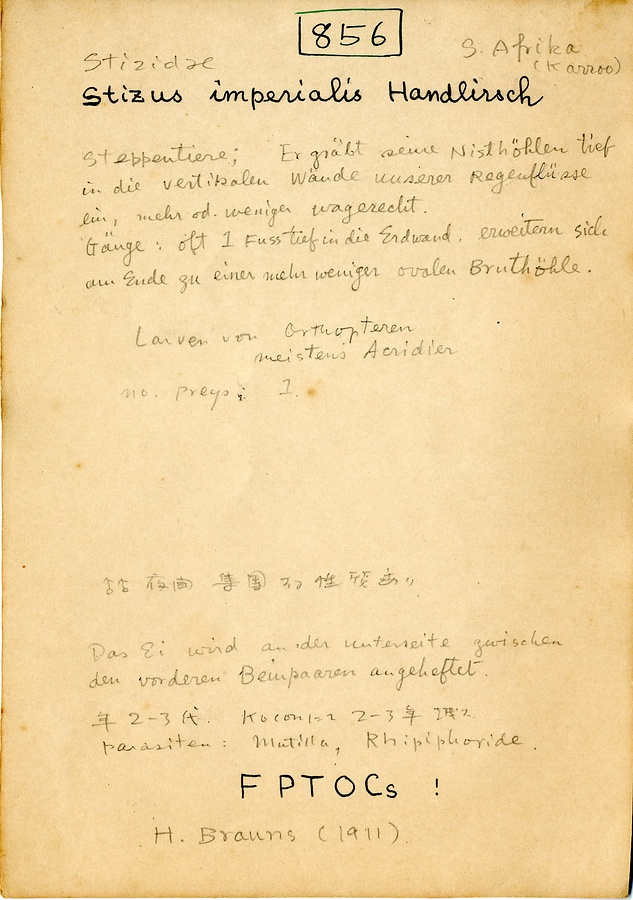 856
Stizidae
S. Afrika
(Karroo)
Stizus imperialis Handlirsch
Steppentiere; Er gräbt seine Nisthöhlen tief
in die vertikalen Wände unserer Regenflüsse
ein, mehr od. weniger wagerecht.
Gänge: oft 1 Fuss tief in die Erdwand. erweitern sich
am Ende zu einer mehr weniger ovalen Bruthöhle.
Larven von Orthopteren
meistens Acridier
no. preys: 1.
集団 性
Das Ei wird an der unterseite zwischen
den vorderen Beinpaaren angeheftet.
年 2-3代. Kocon 2-3年
parasiten: Mutilla, Rhipiphoride.
FPTOCs !
H. Brauns (1911).